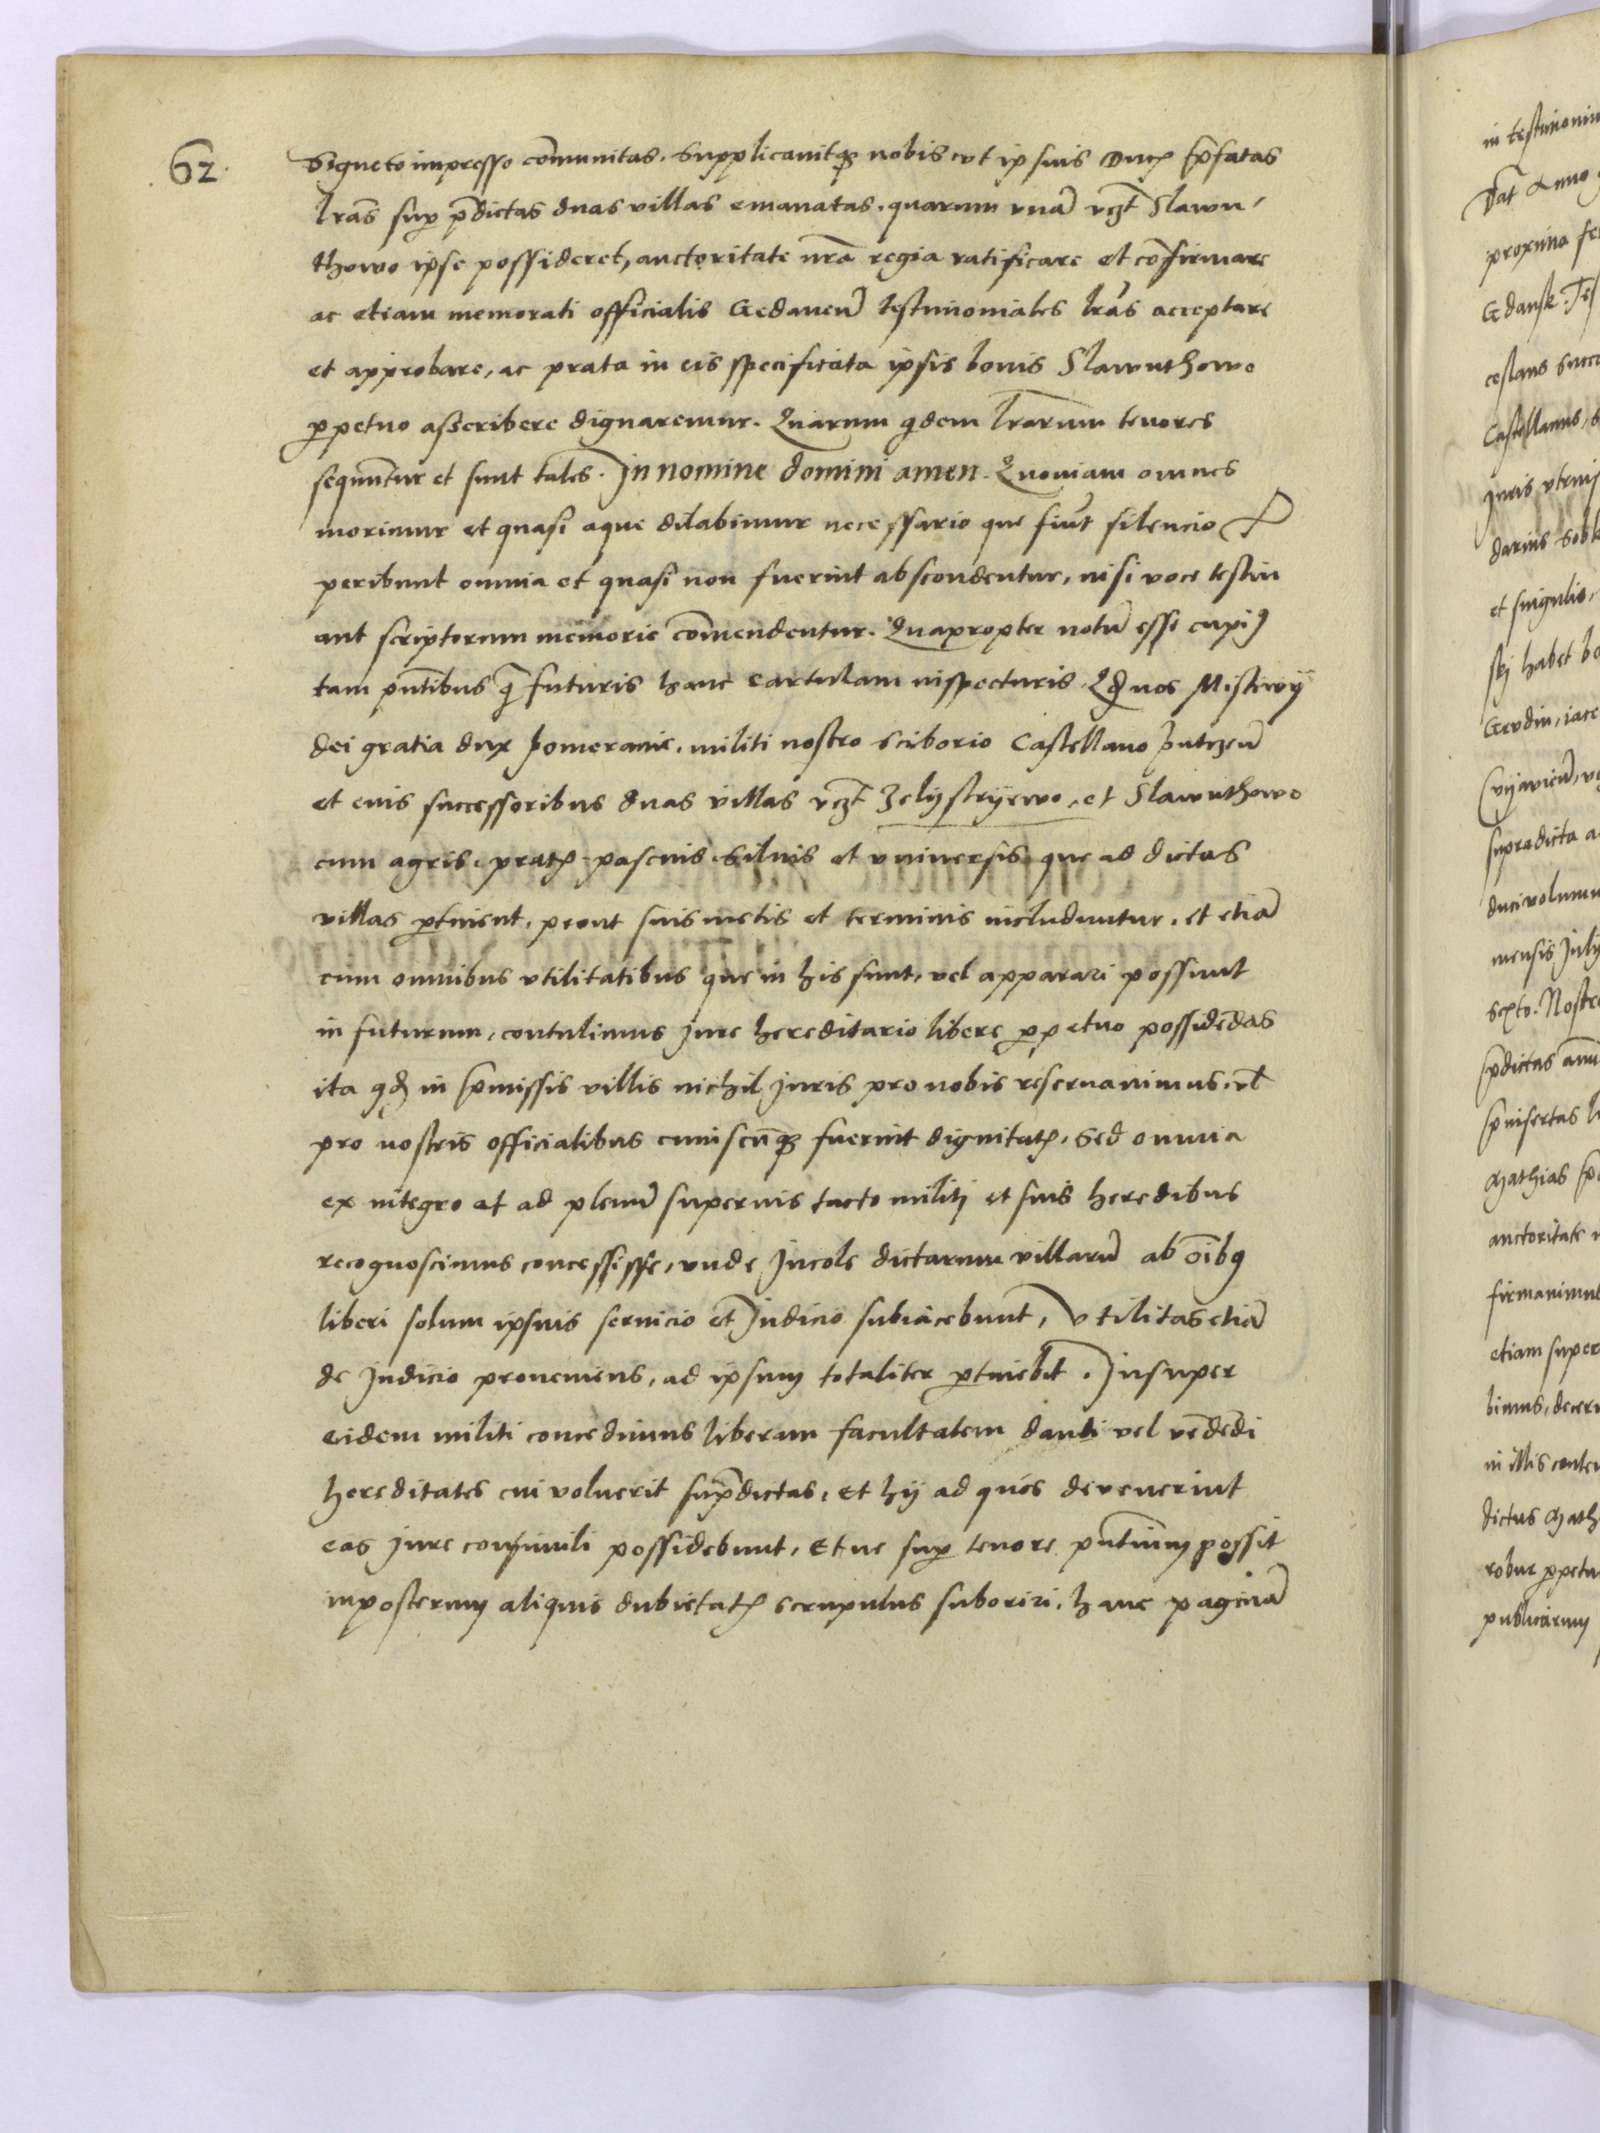 62.
Signeto impresso com̄unitas. Supplicauitqȝ nobis vt ipsius Ducꝭ p̄fatas
lr̄as sup̱ p̄dictas duas villas emanatas. quarum vnā vcȝt Slawu,
thowo ipse possideret, auctoritate nr̄a regia ratificare et cōfirmare
ac etiam memorati officialis Gedaneñ testimoniales lr̄as acceptare
et approbare, ac prata in eis specificata ipsis bonis Slawuthowo
ꝑpetuo asscribere dignaremur. Quarum qdem lr̄arum tenores
sequūntur et sunt tales. In nomine domini amen. Quoniam omnes
morimur et quasi aque dilabimur necessario que fiūt silencio
peribunt omnia et quasi non fuerint abscondentur, nisi voce testiu
aut scriptorum memorie com̄endentur. Quapropter notū esse cupiꝫ
tam pn̄tibus q̄ futuris hanc cartulam inspecturis. Qd nos Mistiwÿ
dei gratia dux Pomeranie. militi nostro Sciborio Castellano Putzeñ
et eius successoribus duas villas vcȝt Zelystrÿewo, et Slawuthowo
cum agris. pratꝭ. pascuis. siluis et vniuersis que ad dictas
villas ꝑtinent. prout suis metis et terminis includuntur. et etiā
cum omnibus vtilitatibus que in his sunt, vel apparari possunt
in futurum, contulimus Jure hereditario libere ꝑpetuo possidēdas
ita qd in p̄missis villis nichil Juris pro nobis reseruauimus. vł
pro nostris officialibus cuiuscūqȝ fuerint dignitatꝭ. Sed omnia
ex integro et ad plenū superius tacto militj et suis heredibus
recognoscimus concessisse, vnde Jncole dictarum villarū ab oībꝰ
liberi solum ipsius seruicio et Judicio subiacebunt, vtilitas etiā
de Judicio proueniens, ad ipsum totaliter ꝑtinebit. Insuper
eidem militi concedimus liberam facultatem dandi vel vēdēdi
hereditates cui voluerit sup̄dictas, et hij ad quos deuenerint
eas Jure consimili possidebunt, et ne sup̱ tenore pn̄tium possit
inposterum aliquis dubietatꝭ scrupulus suboriri. hanc paginā
in testimoniu
Dat̄ Anno
proxima
Gedansk.
Castellanus,
Juris
et singulis,
habet
supradicta
duci volumu
mensis Julij
Sexto. Nostr
p̄dictas
Mathias
auctoritate
firmauimus
etiam super
bimus, decer
in illis conten
dictus Math
robur ꝑpetu
publicarum